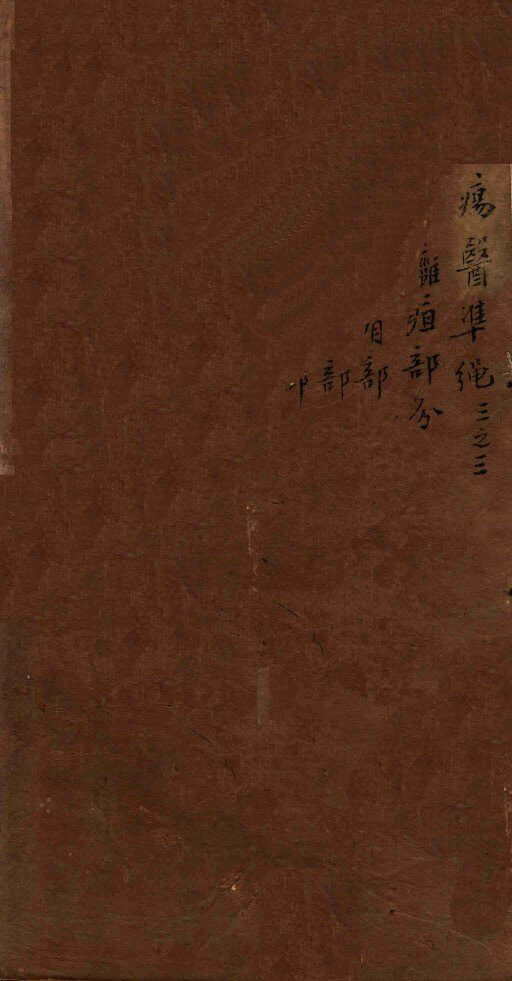 瘍醫準繩三之三
癰疽部分
月部
部